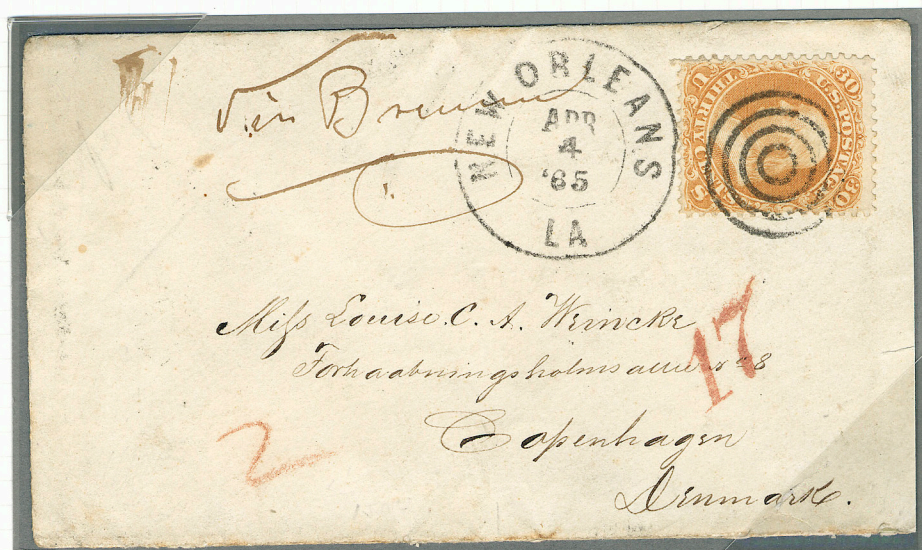 Via Bremen
NEW ORLEANS
APR
4
'65
LA
30 U.S. POSTAGE 30
THIRTY CENTS
U S
Miss Louise. C. A. Weincke
Forhaabningsholms allee No 8
17
Copenhagen
2
Denmark.